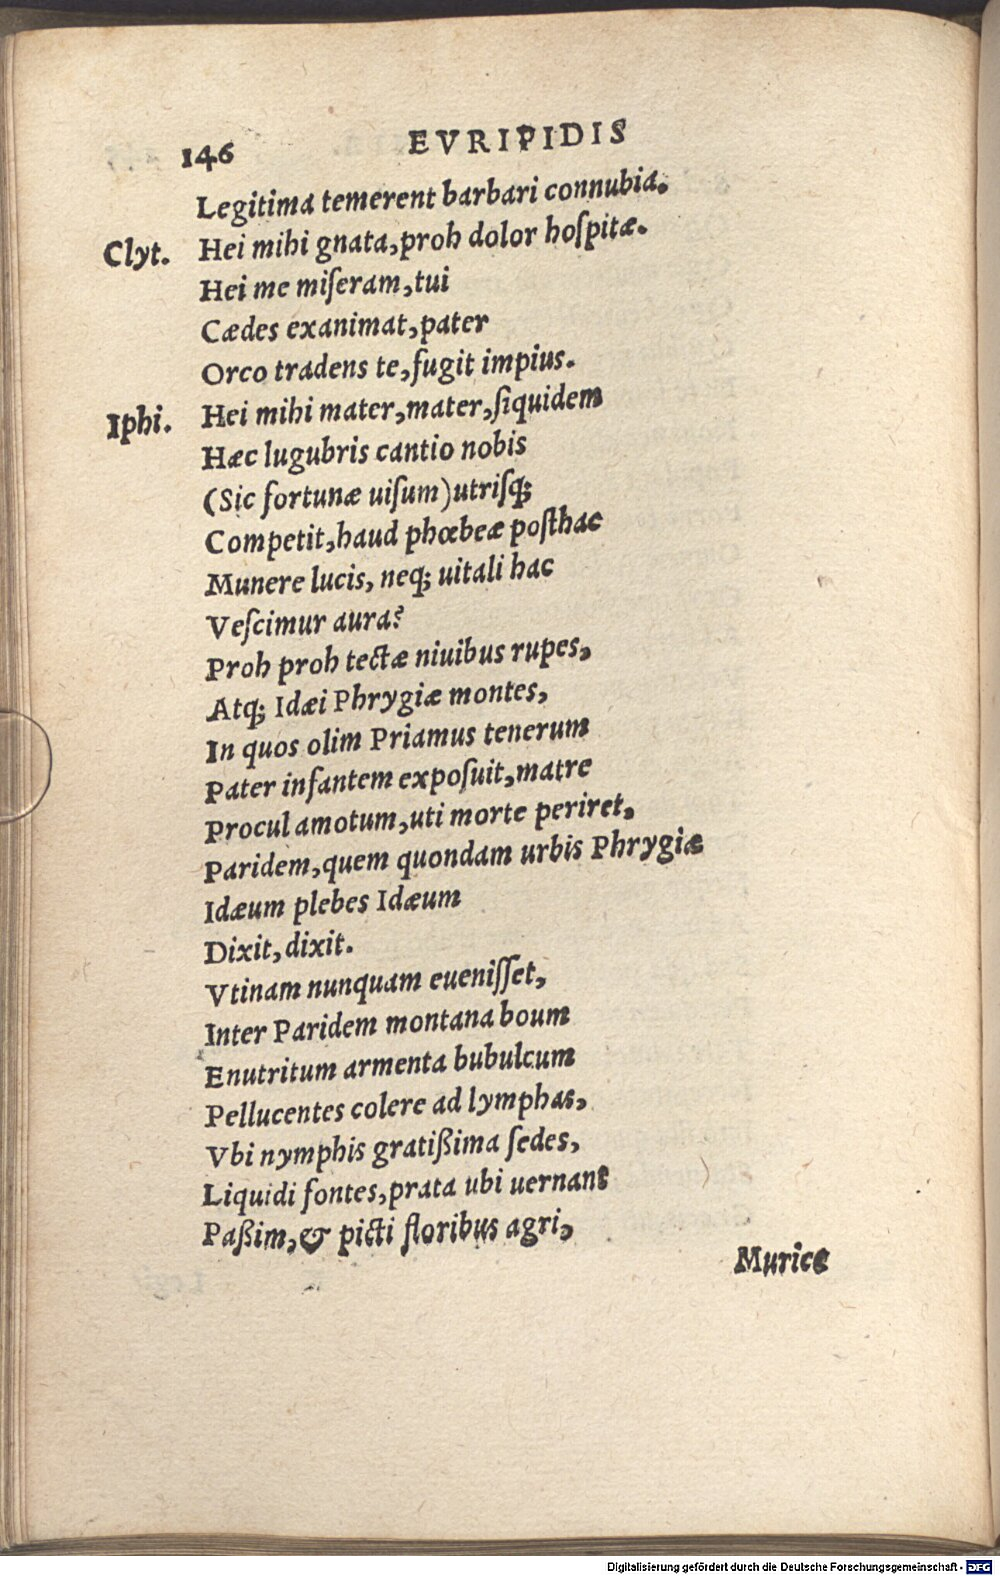 146 EVRIPIDIS
Legitima temerent barbari connubia.
Clyt. Hei mihi gnata,proh dolor hoſpitæ.
Hei me miſeram,tui
Cædes exanimat,pater
Orco tradens te,fugit impius.
Iphi. Hei mihi mater,mater,ſiquidem
Hæc lugubris cantio nobis
(Sic fortunæ uiſum)utriſq;
Competit,haud phœbeæ poſthac
Munere lucis, neq; uitali hac
Veſcimur aura?
Proh proh tectæ niuibus rupes,
Atq; Idæi Phrygiæ montes,
In quos olim Priamus tenerum
Pater infantem expoſuit,matre
Procul amotum,uti morte periret,
Paridem,quem quondam urbis Phrygiæ
Idæum plebes Idæum
Dixit,dixit.
Vtinam nunquam eueniſſet,
Inter Paridem montana boum
Enutritum armenta bubulcum
Pellucentes colere ad lymphas,
Vbi nymphis gratißima ſedes,
Liquidi fontes,prata ubi uernant
Paßim,& picti floribus agri,
Murice
Digitalisierung gefördert durch die Deutsche Forschungsgemeinschaft - DFG